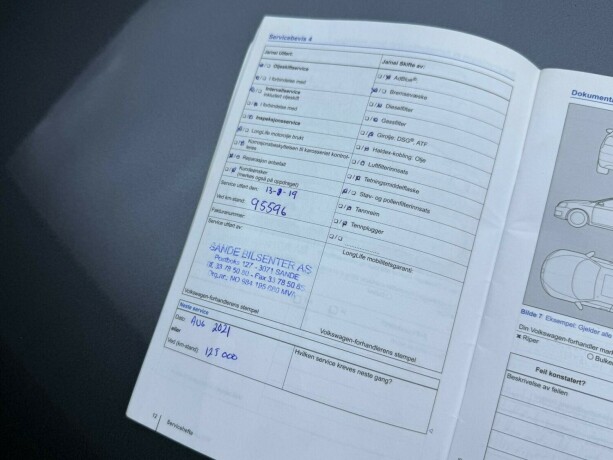 Servicebevis 4
Ja/nei Utført:
Oljeskiftservice
I forbindelse med
Intervallservice
inkludert oljeskift
I forbindelse med
Inspeksjonsservice
LongLife motorolje brukt
Reparasjon anbefalt
(merkes også på oppdraget)
Service utført den: 13-8-19
Ved km-stand: 95596
Fakturanummer:
Service utført av:
SANDE BILSENTER AS
Postboks 127 - 3071 SANDE
Tlf. 33 78 50 80 - Fax 33 78 50 85
Org.nr. NO 984 195 680 MVA
Volkswagen-forhandlerens stempel
Ja/nei Skifte av:
AdBlue®
Bremsevæske
Dieselfilter
Gassfilter
Girolje: DSG® ATF
Haldex-kobling: Olje
Luftfilterinnsats
Tetningsmiddelflaske
Støv- og pollenfilterinnsats
Tannreim
Tennplugger
LongLife mobilitetsgaranti:
Volkswagen-forhandlerens stempel
Neste service
Dato: AUG 2021
eller
Ved (km-stand): 125000
Hvilken service kreves neste gang?
12 Servicehefte
Dokumenta
Bilde 7 Eksempel: Gjelder alle
Din Volkswagen-forhandler mar
Riper
Bulker
Feil konstatert?
Beskrivelse av feilen